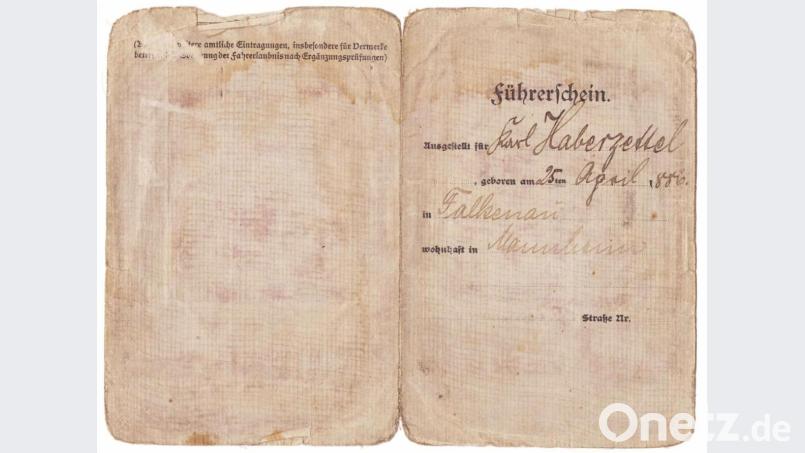 tere amtliche Eintragungen, insbesondere für Vermerke
der Fahrerlaubnis nach Ergänzungsprüfungen)
Führerschein.
Ausgestellt für Karl Haberzettel
, geboren am 25ten April 1886.
in Falkenau
wohnhaft in Mannheim
Straße Nr.
Onetz.de